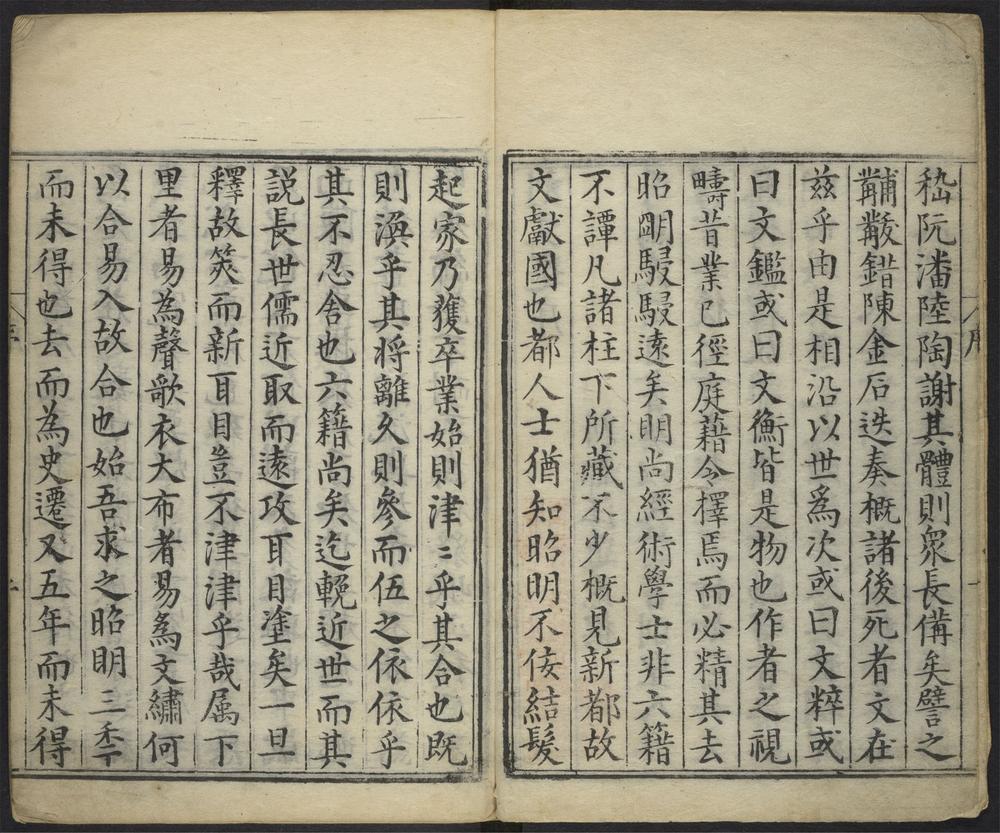 嵇阮潘陸陶謝其體則眾長備矣譬之
黼黻錯陳金石迭奏概諸後死者文在
茲乎由是相沿以世爲次或曰文粹或
曰文鑑或曰文衡皆是物也作者之視
疇昔業已徑庭藉令擇焉而必精其去
昭朙駸駸遠矣明尚經術學士非六籍
不譚凡諸柱下所藏不少概見新都故
文獻國也都人士猶知昭明不佞結髮
起家乃獲卒業始則津〻乎其合也既
則渙乎其將離久則參而伍之依依乎
其不忍舍也六籍尚矣迄輓近世而其
説長世儒近取而遠攻耳目塗矣一旦
釋故筴而新耳目豈不津津乎哉属下
里者易為聲歌衣大布者易爲文繡何
以合易入故合也始吾求之昭明三秊
而未得也去而為史遷又五年而未得